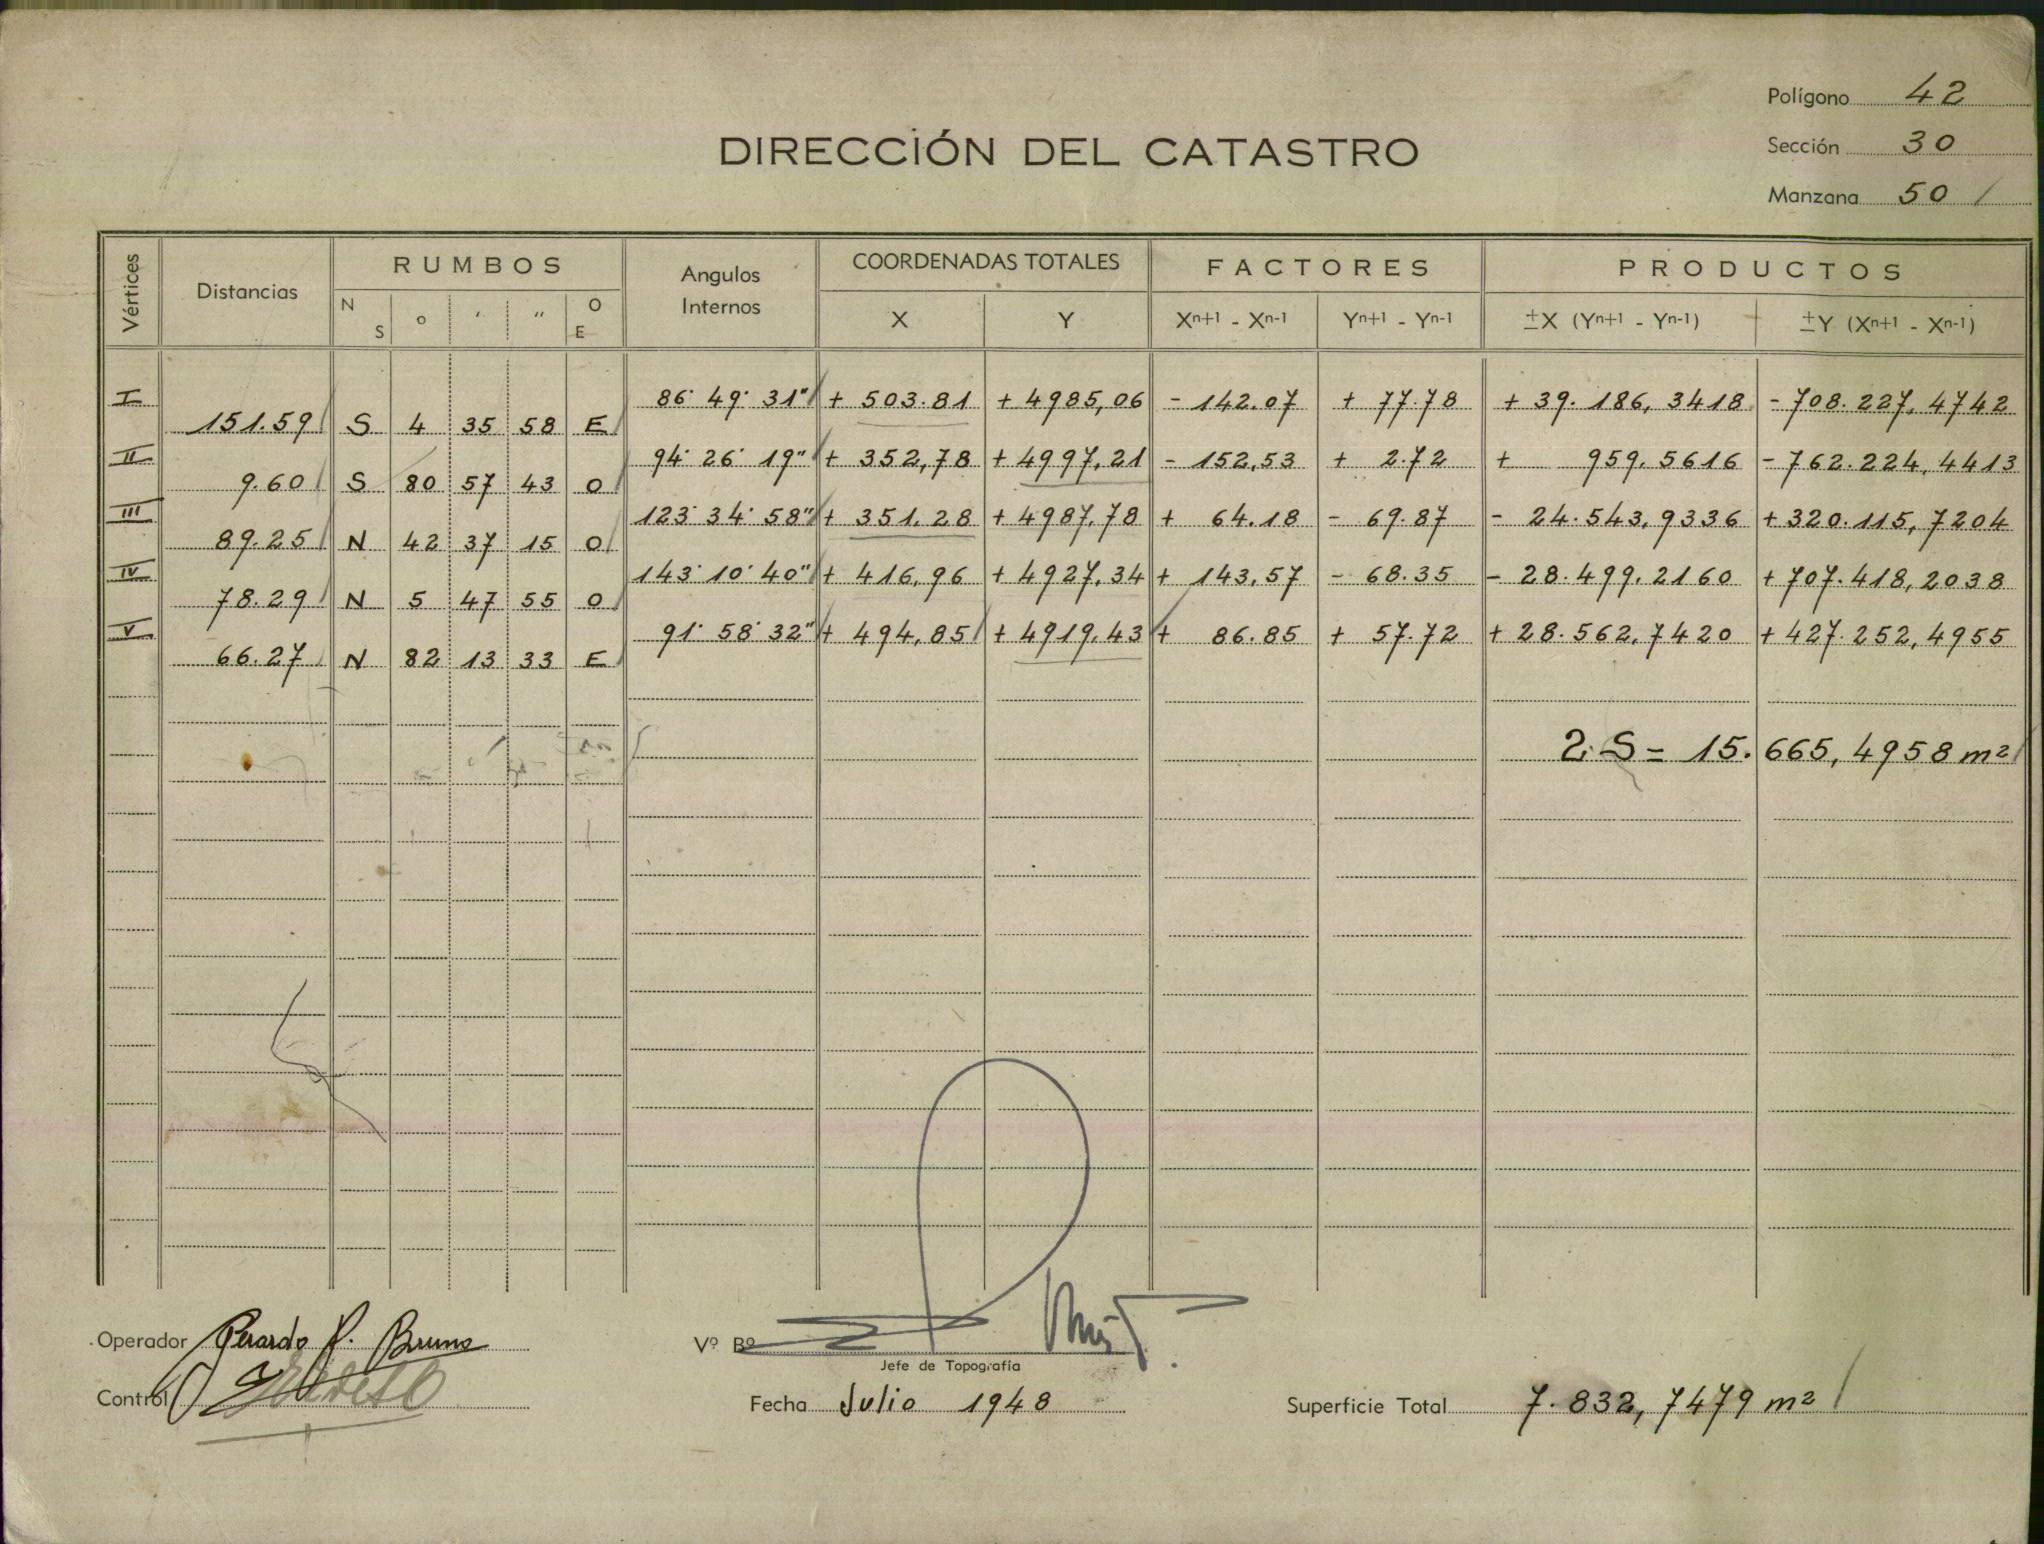 Polígono 42
DIRECCIÓN DEL CATASTRO
Sección 30
Manzana 50 /
Vértices Distancias RUMBOS Angulos Internos COORDENADAS TOTALES FACTORES PRODUCTOS
N S o ′ ″ O E X Y Xn+1 - Xn-1 Yn+1 - Yn-1 ±X (Yn+1 - Yn-1) ±Y (Xn+1 - Xn-1)
I 86° 49' 31" + 503.81 + 4985,06 - 142.07 + 77.78 + 39.186,3418 - 708.227,4742
151.59 S 4 35 58 E
II 94° 26' 19" + 352,78 + 4997,21 - 152,53 + 2.72 + 959.5616 - 762.224,4413
9.60 S 80 57 43 O
III 123° 34' 58" + 351.28 + 4987,78 + 64.18 - 69.87 - 24.543,9336 + 320.115,7204
89.25 N 42 37 15 O
IV 143° 10' 40" + 416,96 + 4927,34 + 143,57 - 68.35 - 28.499.2160 + 707.418,2038
78.29 N 5 47 55 O
V 91° 58' 32" + 494,85 + 4919,43 + 86.85 + 57.72 + 28.562,7420 + 427.252,4955
66.27 N 82 13 33 E
2 S = 15.665,4958 m²
Operador Gerardo P. Bruno
Vº Bº
Jefe de Topografía
Control
Fecha Julio 1948
Superficie Total 7.832,7479 m² /